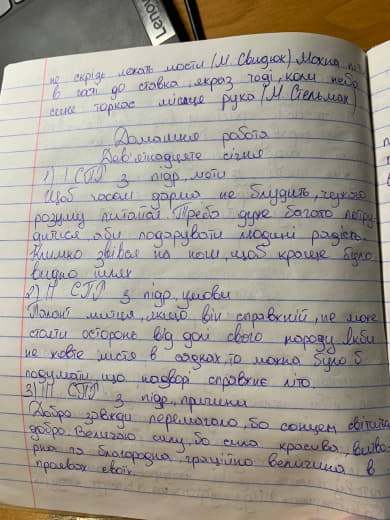 Lenovo
не скрізь лежать мости (М. Свидюк) Можна піти
в гості до ставка, якраз тоді, коли небо
синє торкає місяця рука (М. Стельмах)
Домашня робота
Дев'ятнадцяте січня
1) І СПР з підр. мети
Щоб часом дарма не блудить, чужого
розуму питайся Треба дуже багато потру
дитися аби подарувати людині радість.
Климко звівся на ноги, щоб краще було
видно шлях
2) ІІ СПР з підр. умови
Талант митця, якщо він справжній, не може
стояти осторонь від долі свого народу. Якби
не жовте листя в садках, то можна було б
подумати, що надворі справжнє літо.
3) ІІІ СПР з підр. причини
Добро завжди перемагало, бо сонцем світить
добро. Величаю силу, бо сила красива,
рна та благородна, граційно велична в
проявах своїх.